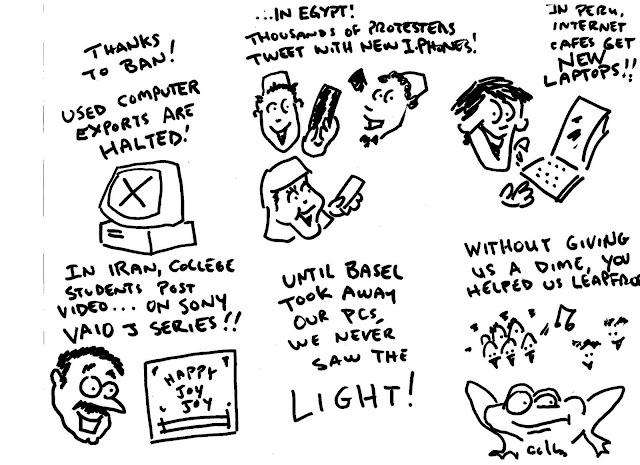 THANKS
TO BAN!
USED COMPUTER
EXPORTS ARE
HALTED!
...IN EGYPT!
THOUSANDS OF PROTESTERS
TWEET WITH NEW I.PHONES!
IN PERU,
INTERNET
CAFES GET
NEW
LAPTOPS!!
IN IRAN, COLLEGE
STUDENTS POST
VIDEO... ON SONY
VAIO J SERIES!!
HAPPY
JOY
JOY
UNTIL BASEL
TOOK AWAY
OUR PCS,
WE NEVER
SAW THE
LIGHT!
WITHOUT GIVING
US A DIME, YOU
HELPED US LEAPFROG